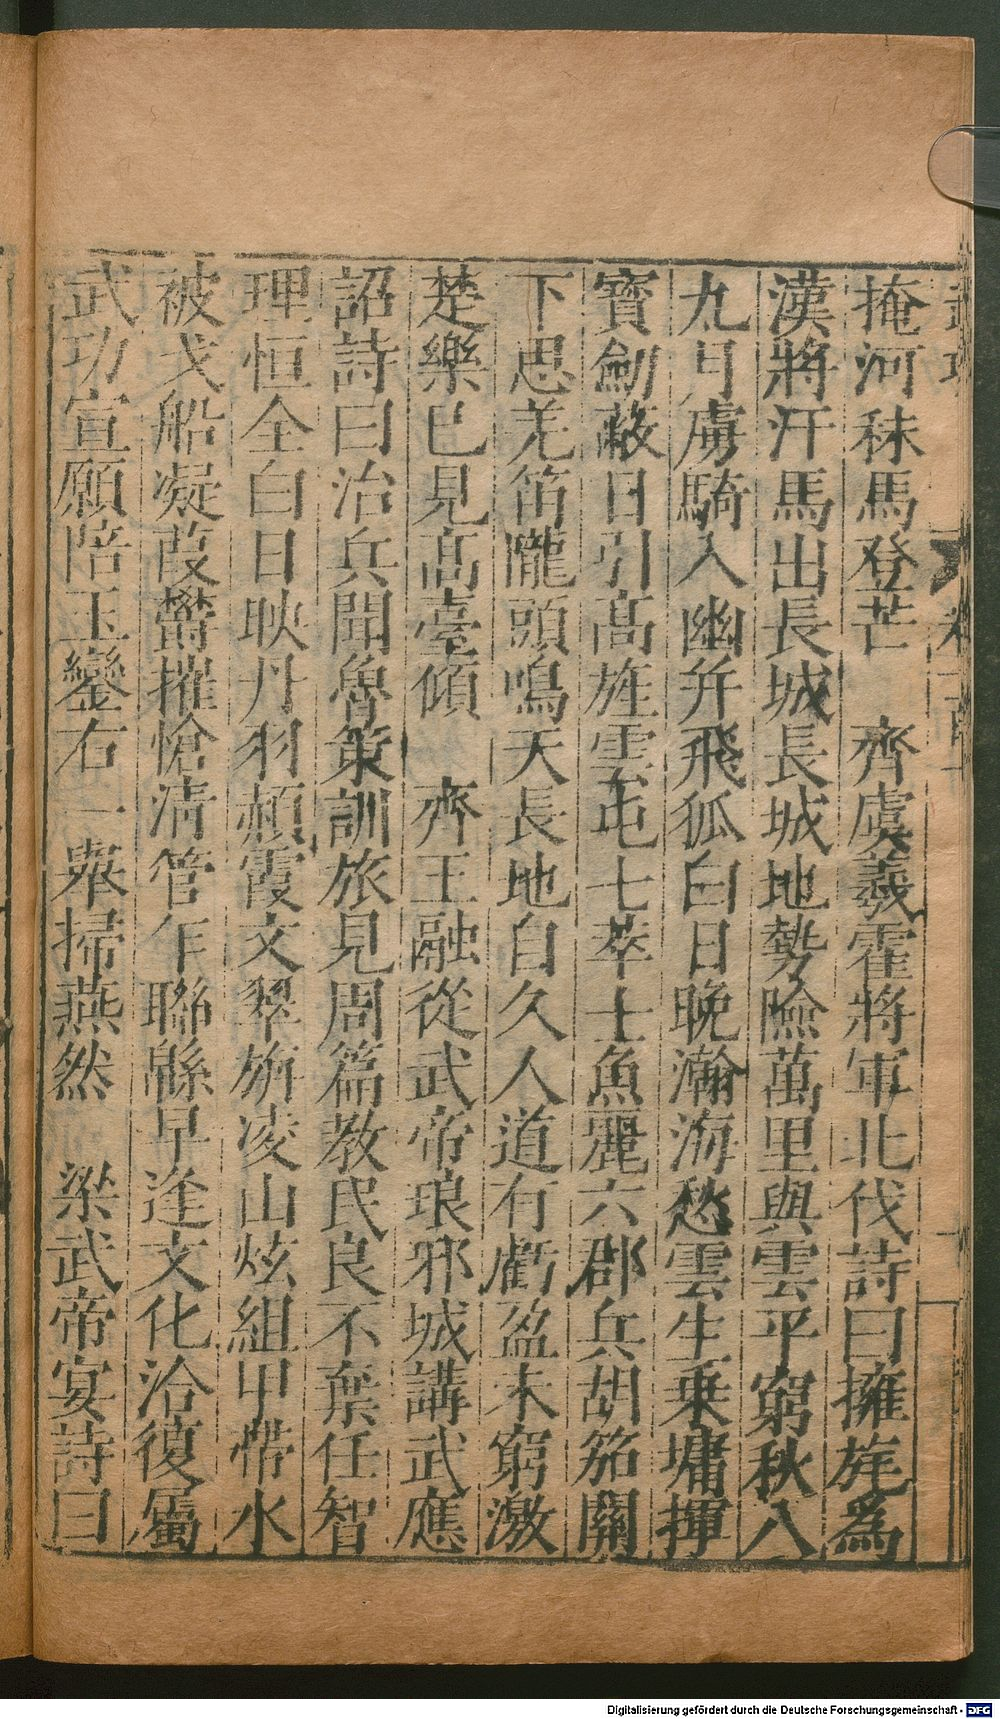 掩河秣馬登芒　齊虞羲霍將軍北伐詩曰擁旄爲
漢將汗馬出長城長城地勢險萬里與雲平窮秋八
九月虜騎入幽幷飛狐白日晚瀚海愁雲生乗墉揮
寳劒蔽日引高旌雲屯七萃士魚麗六郡兵胡笳關
下思羌笛隴頭鳴天長地自久人道有虧盈未窮激
楚樂巳見高臺傾　齊王融從武帝琅邪城講武應
詔詩曰治兵聞魯策訓旅見周篇教民良不棄任智
理恒全白日映丹羽頳霞文翠旃凌山炫組甲帶水
被戈船凝葭欝摧愴清管乍聯緜早逢文化洽復屬
武功宣願陪玉鑾右一舉掃燕然　梁武帝宴詩曰
Digitalisierung gefördert durch die Deutsche Forschungsgemeinschaft - DFG